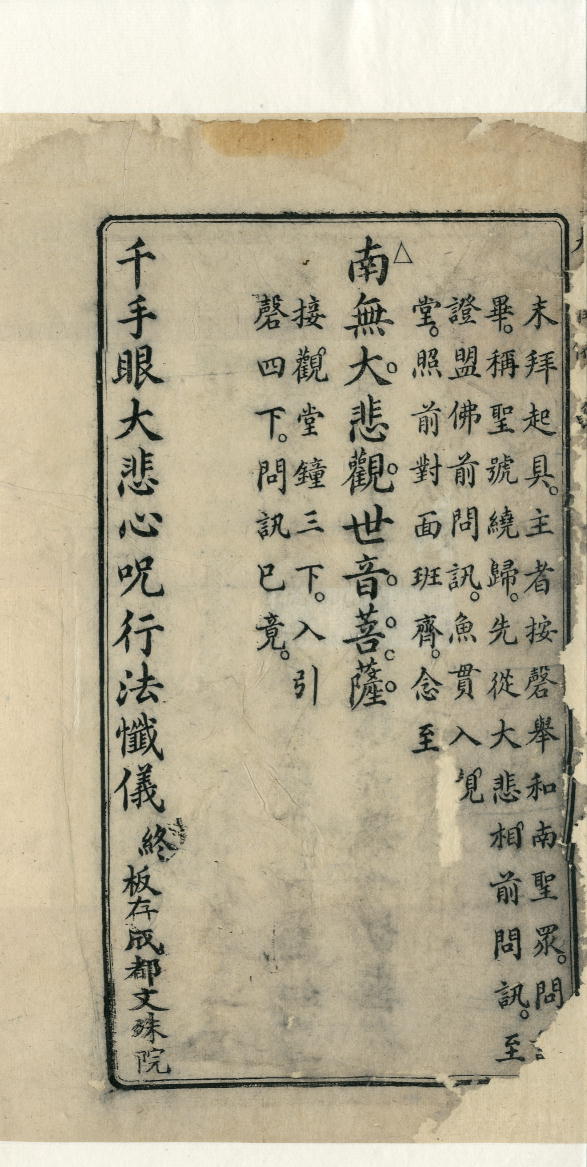 末拜起具。主者按磬舉和南聖眾。問
畢。稱聖號繞歸。先從大悲相前問訊。至
證盟佛前問訊。魚貫入
堂。照前對面班齊。念至
△
南無大。悲觀。世音。菩。薩。
接觀堂鐘三下。入引
磬四下。問訊已竟。
千手眼大悲心呪行法懺儀 終
板存成都文殊院